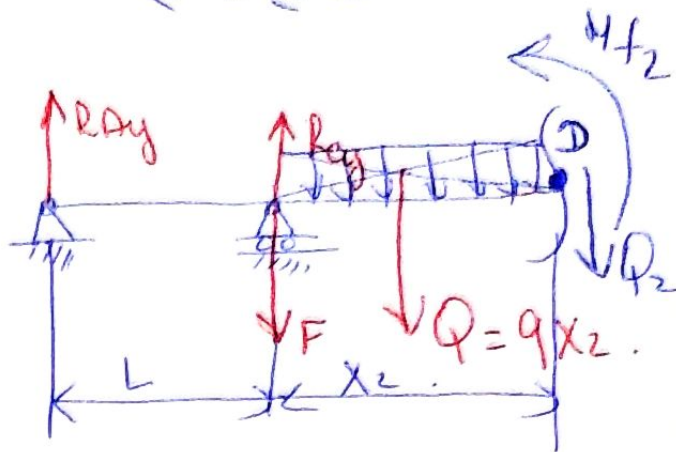 Mf2
RAy
D
Q2
F
Q = qx2.
L
x2.